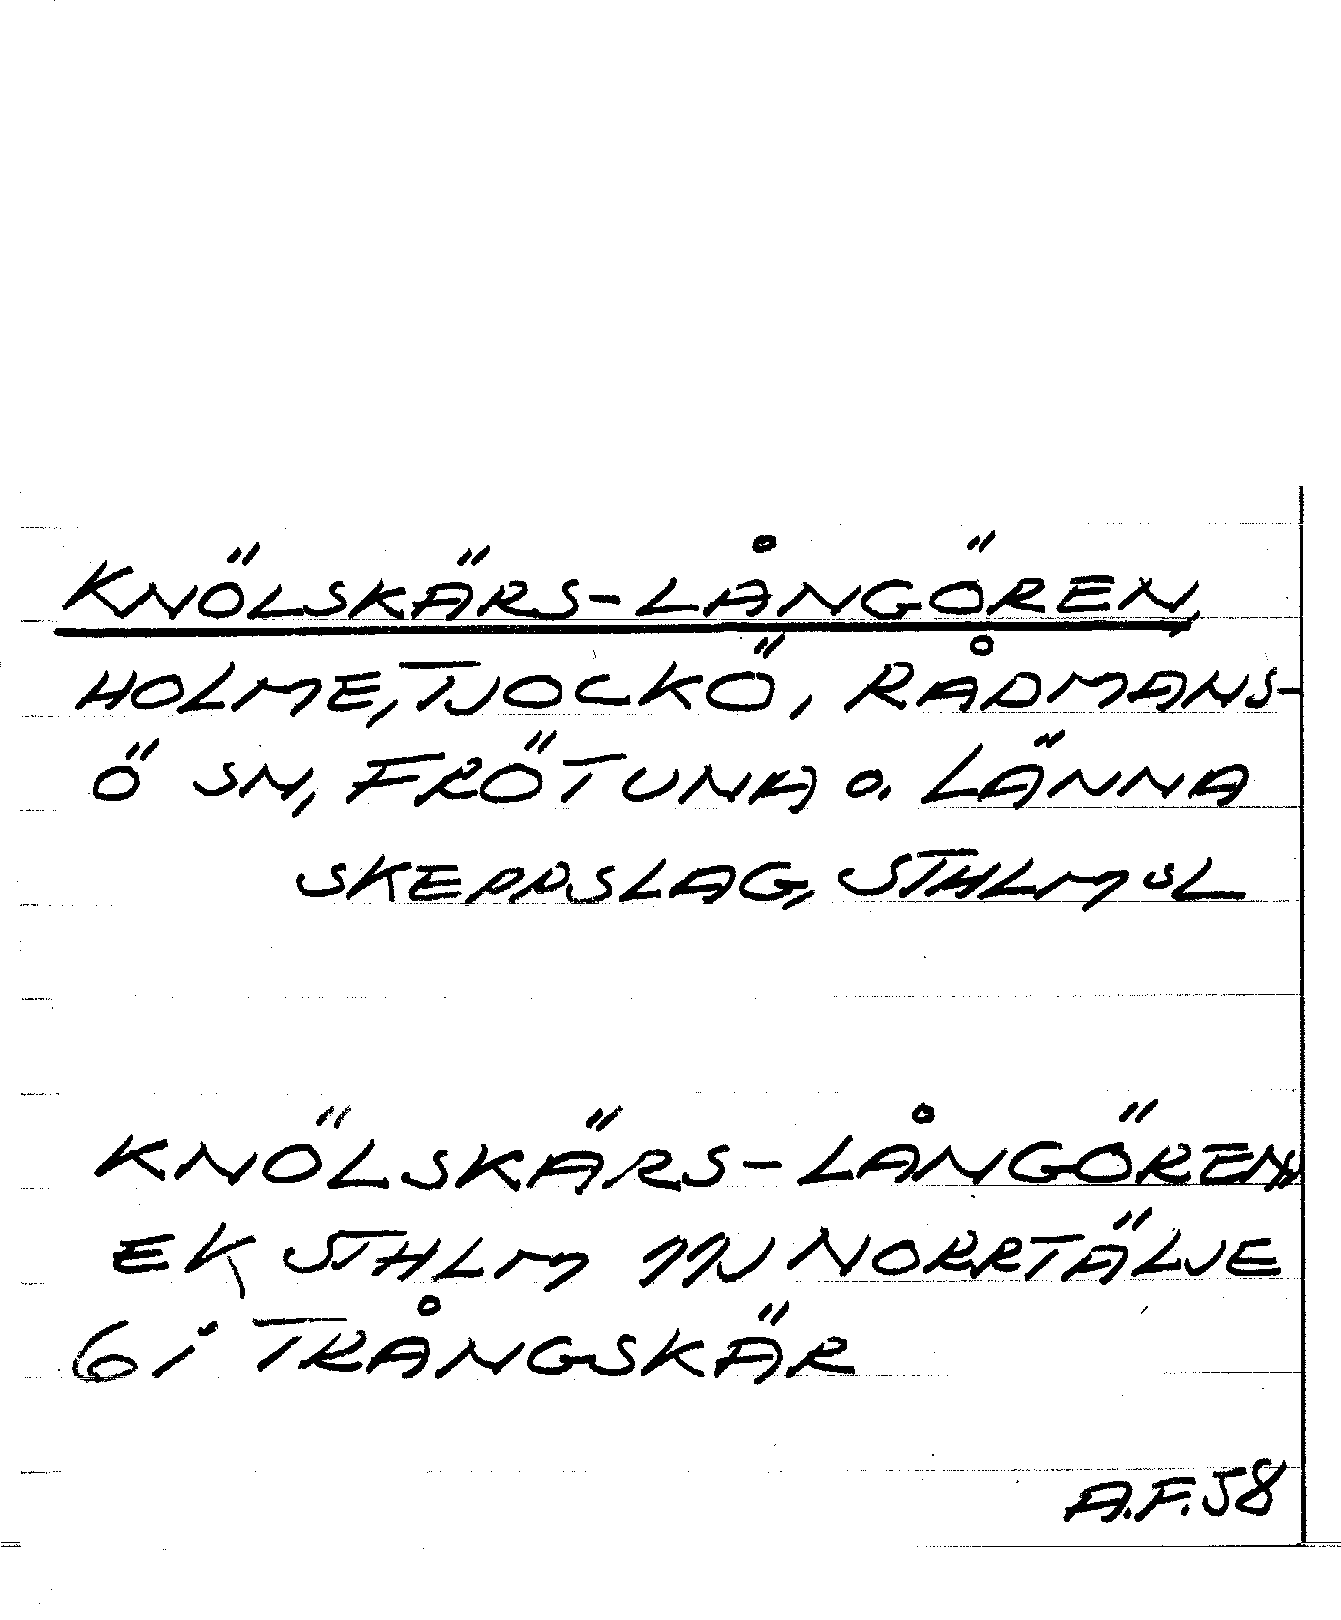 KNÖLSKÄRS-LÅNGÖREN,
HOLME, TJOCKÖ, RÅDMANS-
Ö SN, FRÖTUNA O. LÄNNA
SKEPPSLAG, STHLMSL
KNÖLSKÄRS-LÅNGÖREN,
EK STHLM 11J NORRTÄLJE
6 i TRÅNGSKÄR
A.F. 58